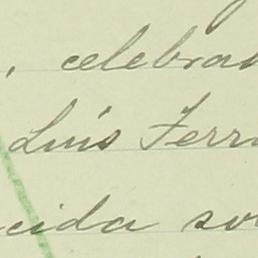 , celebrad
Luis Ferr
cida so